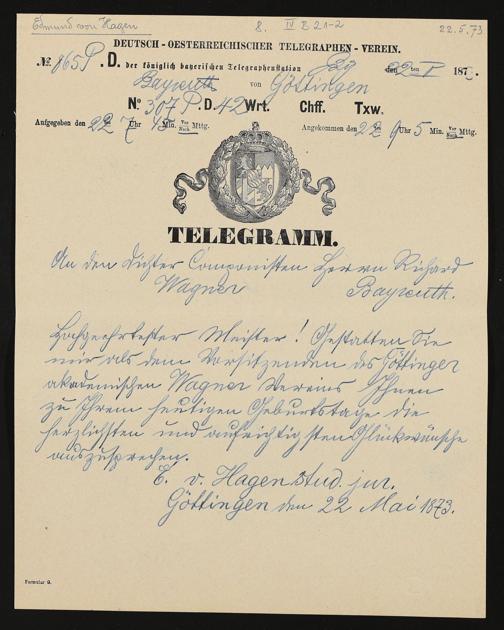 Edmund von Hagen 8. IV B 21-2 22.5.73
DEUTSCH-OESTERREICHISCHER TELEGRAPHEN-VEREIN.
№ 865 P. D. der königlich bayerischen Telegraphenstation den 22ten 187
Bayreuth von Göttingen
No 307 P. D. 42 Wrt. Chff. Txw.
Aufgegeben den 22 7 Uhr 45 Min. Vor Nach Mttg. Angekommen den 22 9 Uhr 5 Min. Vor Nach Mttg.
TELEGRAMM.
An den Dichter Componisten Herrn Richard
Wagner Bayreuth.
Hochgeehrtester Meister! Gestatten Sie
mir als dem Vorsitzenden des Göttinger
akademischen Wagner Vereins Ihnen
zu Ihrem heutigen Geburtstage die
herzlichsten und aufrichtigsten Glückwünsche
auszusprechen.
E. v. Hagen stud. jur.
Göttingen den 22 Mai 1873.
Formular 9.